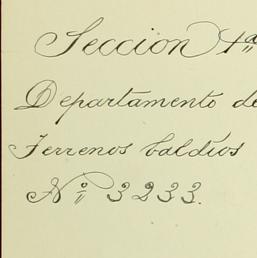 Seccion 1ª
Departamento de
Terrenos baldíos
Nº 3233.